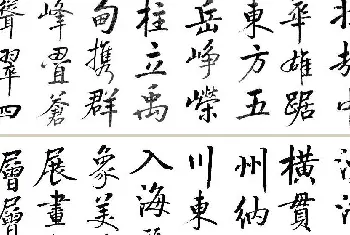 平雄踞
東方五
岳崢嶸
柱立禹
甸携群
峰疊蒼
聳翠四
橫貫
州納
川東
入海
象美
展畫
層層